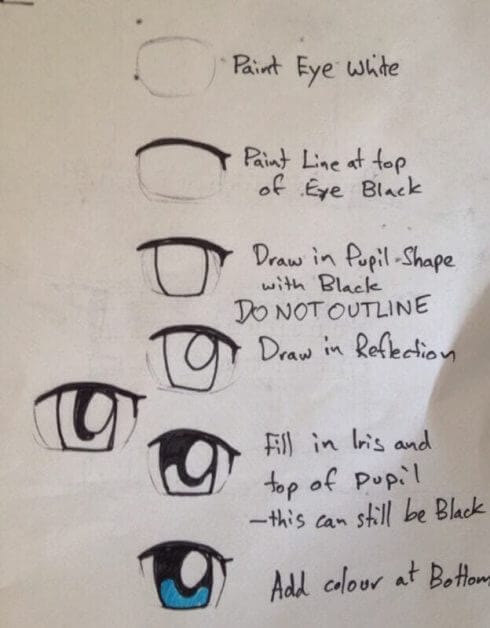 Paint Eye White
Paint Line at top
of Eye Black
Draw in Pupil-Shape
with Black
DO NOT OUTLINE
Draw in Reflection
Fill in Iris and
top of Pupil
-this can still be Black
Add colour at Bottom